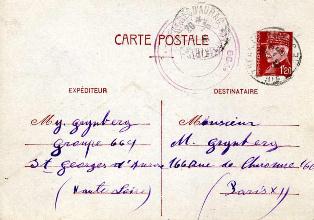 CARTE POSTALE
1F20
EXPÉDITEUR
My. Grynberg
Groupe 664
St Georges d'Aurac
(Haute Loire)
DESTINATAIRE
Monsieur
M. Grynberg
166 Rue de Charonne 166
(Paris XI)